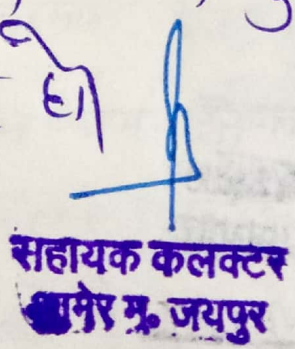 हो
सहायक कलक्टर
आमेर मु. जयपुर